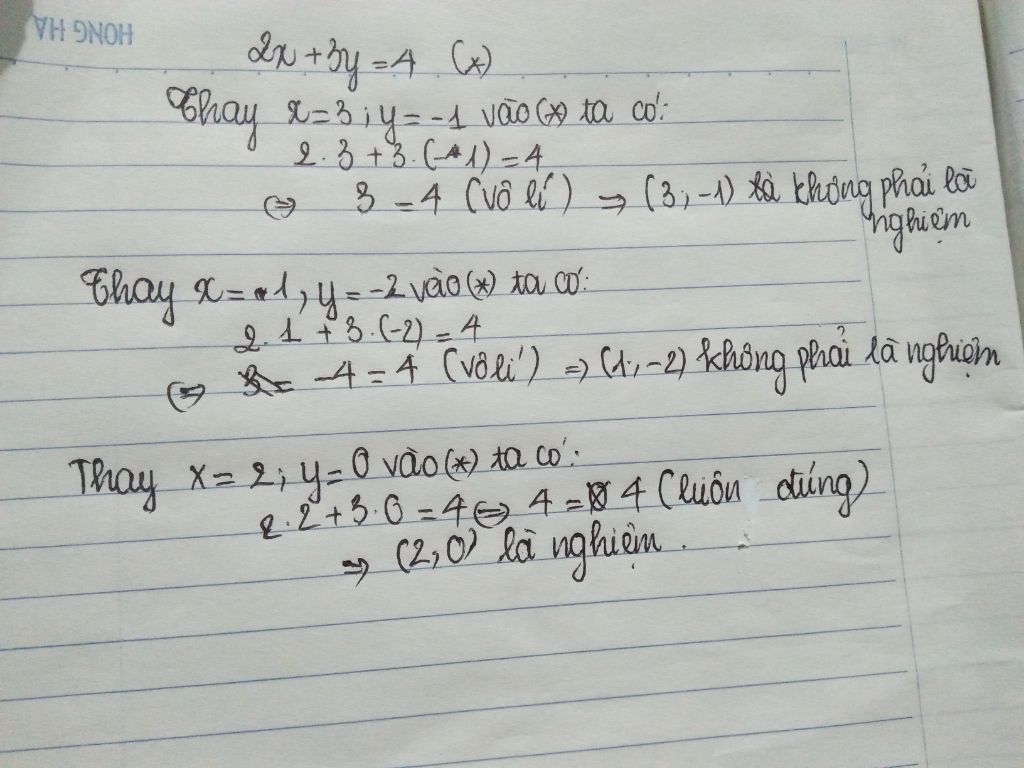 HONG HA
2x + 3y = 4 (*)
Thay x = 3 ; y = -1 vào (*) ta có:
2 . 3 + 3 . (-1) = 4
⇔ 3 = 4 (vô lí) ⇒ (3 ; -1) là không phải là
nghiệm
Thay x = 1 , y = -2 vào (*) ta có:
2 . 1 + 3 . (-2) = 4
⇔ -4 = 4 (vô lí) ⇒ (1 ; -2) không phải là nghiệm
Thay x = 2 ; y = 0 vào (*) ta có:
2 . 2 + 3 . 0 = 4 ⇔ 4 = 4 (luôn đúng)
⇒ (2 ; 0) là nghiệm .